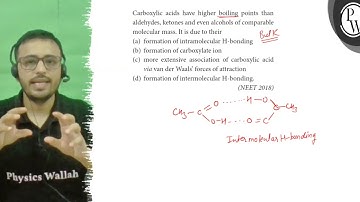 Carboxylic acids have higher boiling points than
aldehydes, ketones and even alcohols of comparable
molecular mass. It is due to their
Bulk
(a) formation of intramolecular H-bonding
(b) formation of carboxylate ion
(c) more extensive association of carboxylic acid
via van der Waals' forces of attraction
(d) formation of intermolecular H-bonding.
(NEET 2018)
O ...... H-O
CH3-C
C-CH3
O-H ...... O=C
Intermolecular H-bonding
Physics Wallah